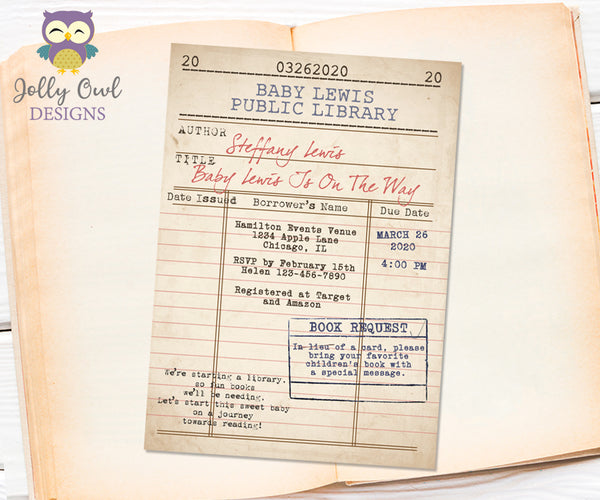 Jolly Owl
DESIGNS
20 03262020 20
BABY LEWIS
PUBLIC LIBRARY
AUTHOR
Steffany Lewis
TITLE
Baby Lewis Is On The Way
Date Issued Borrower's Name Due Date
Hamilton Events Venue
1234 Apple Lane
Chicago, IL
RSVP by February 15th
Helen 123-456-7890
Registered at Target
and Amazon
MARCH 26
2020
4:00 PM
BOOK REQUEST
In lieu of a card, please
bring your favorite
children's book with
a special message.
We're starting a library,
so fun books
we'll be needing.
Let's start this sweet baby
on a journey
towards reading!